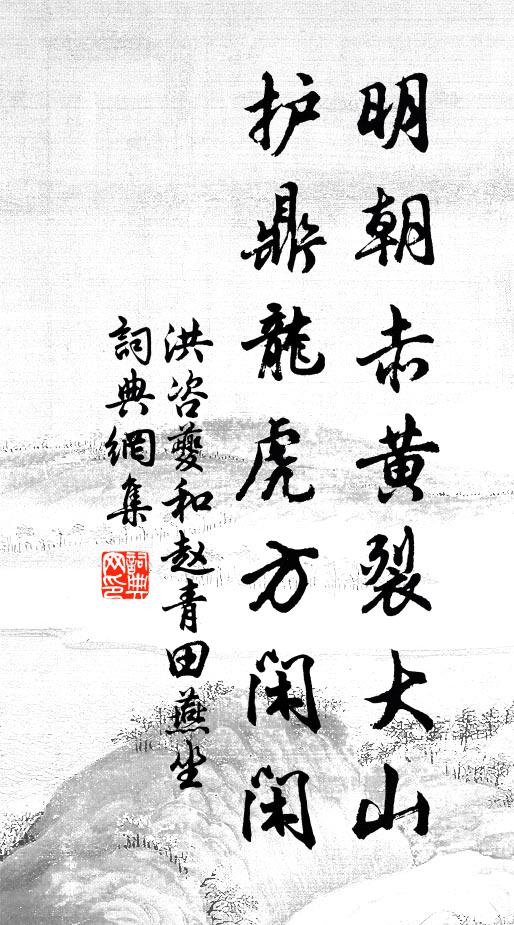 明朝赤黄裂大山
护鼎龍虎方闲闲
洪咨夔和赵青田燕坐
詞典網集
詞典
网印